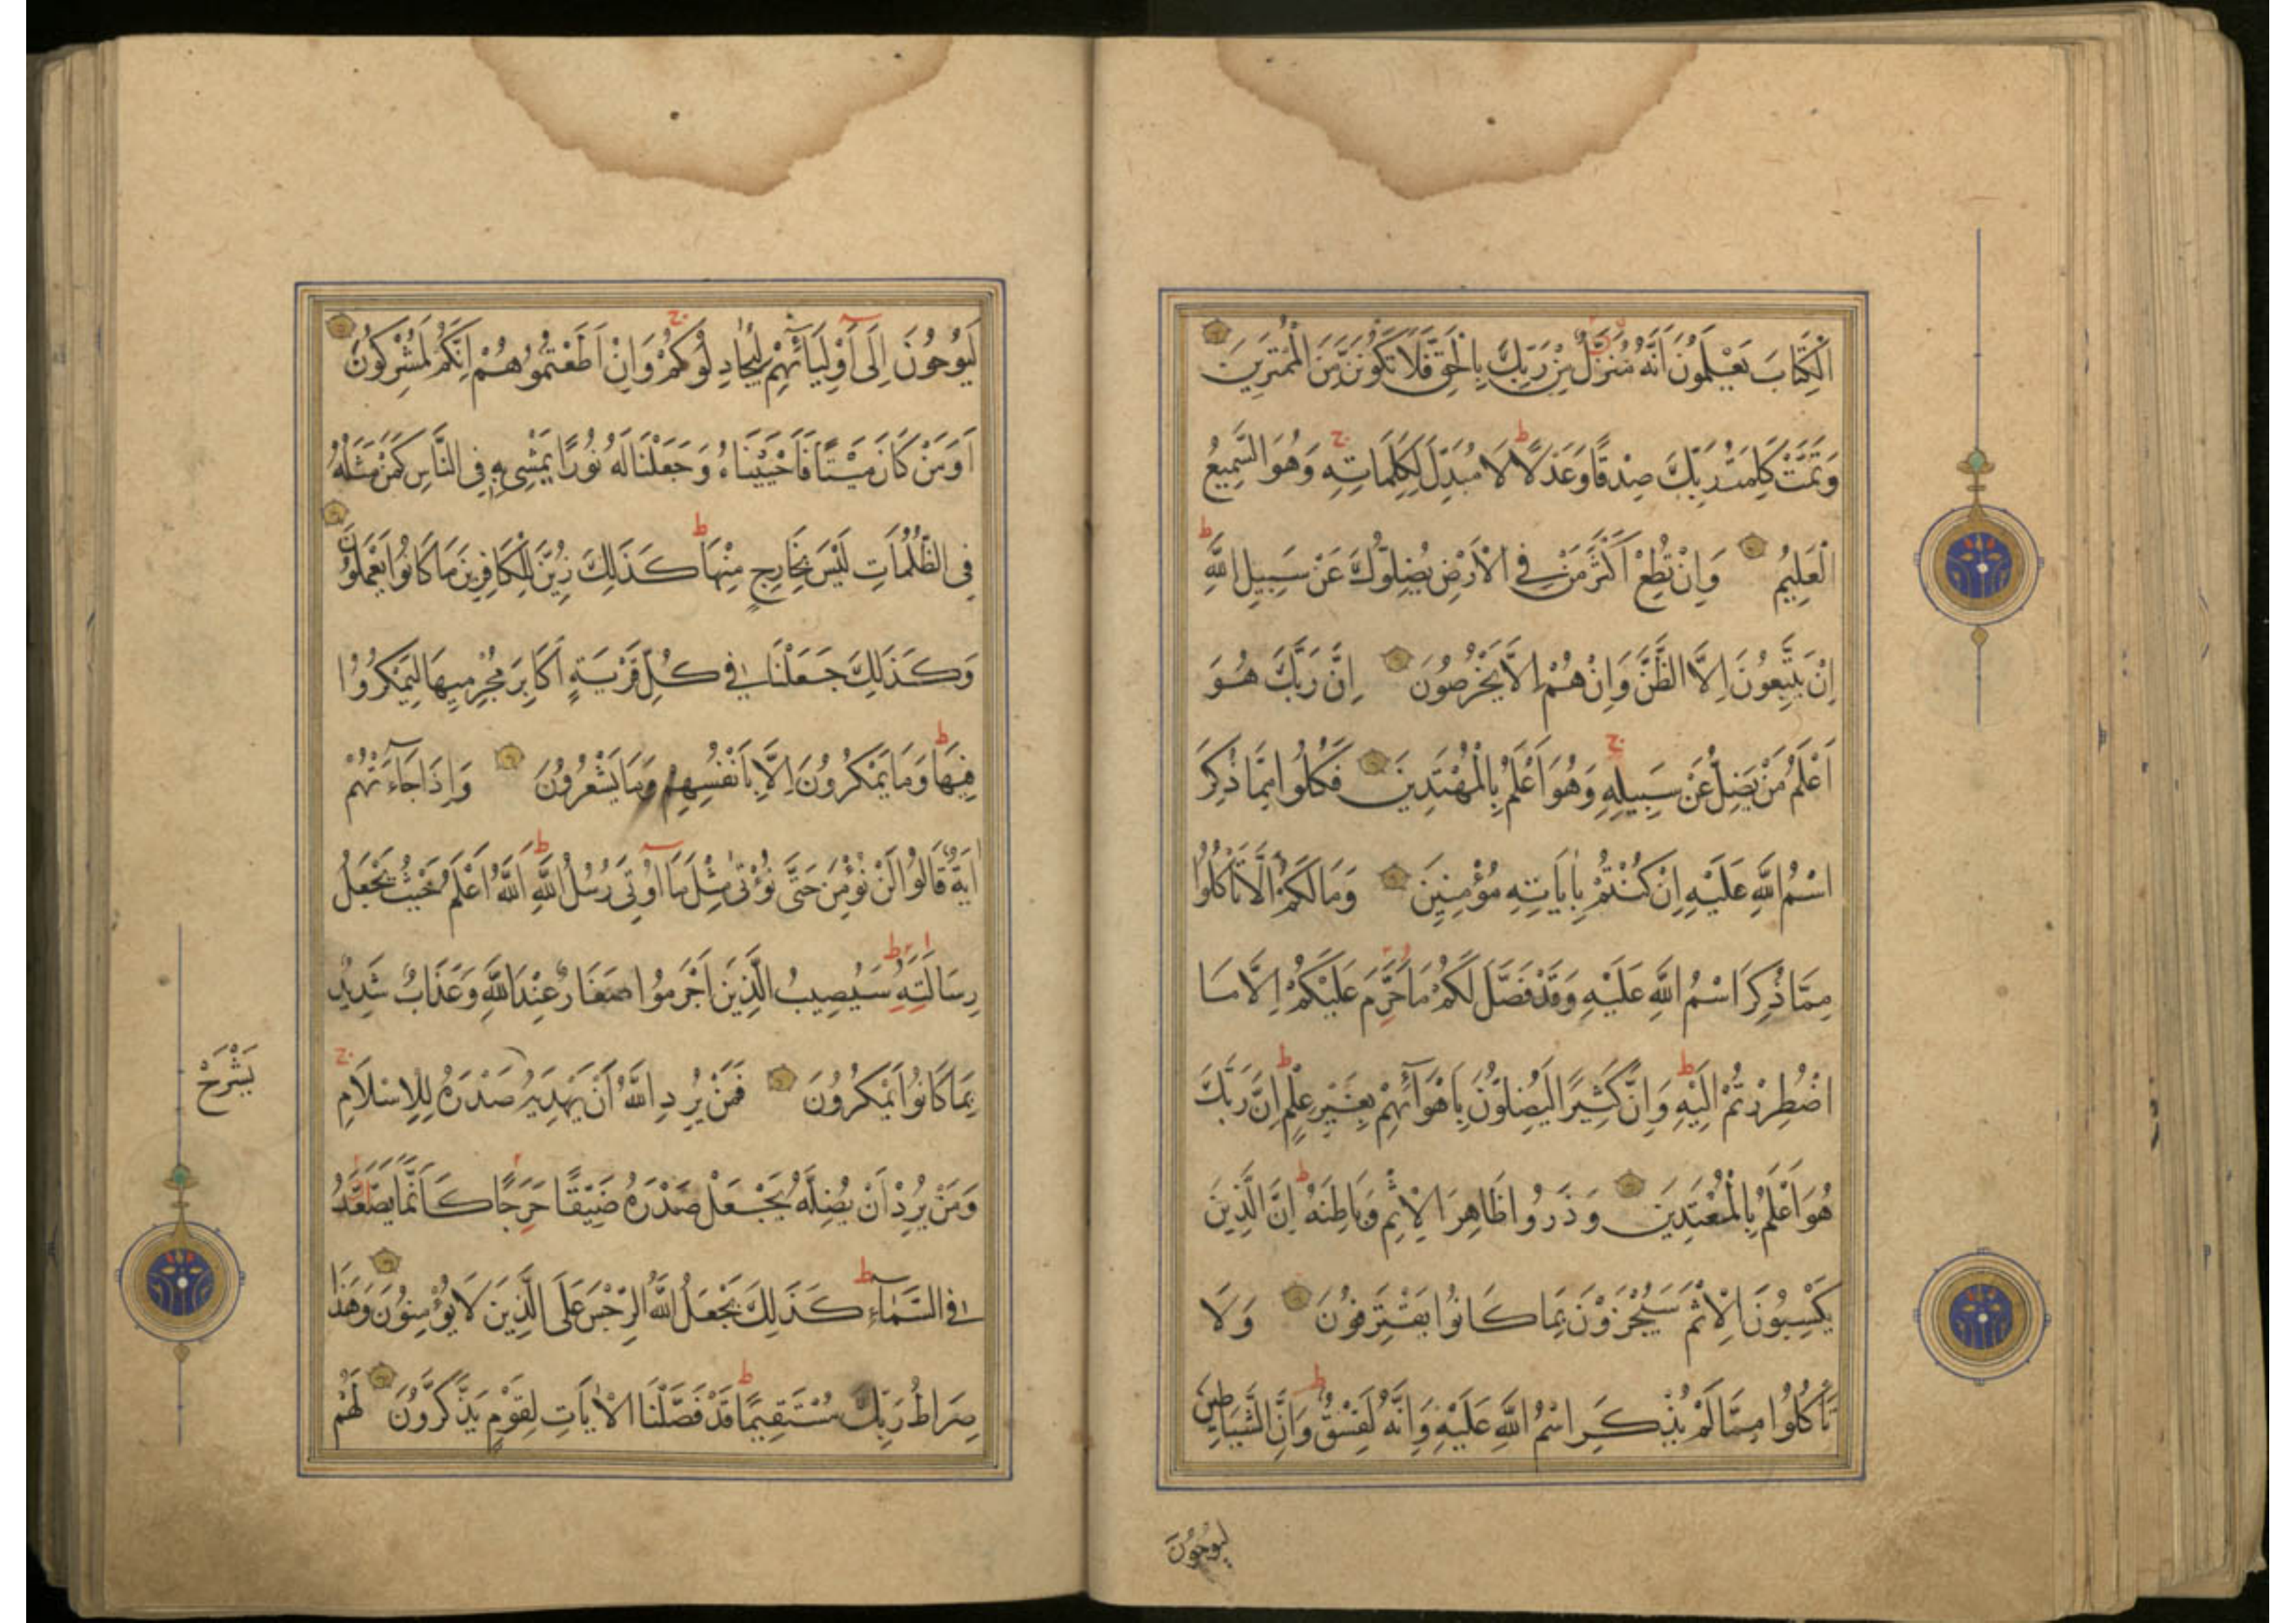 الْكِتَابَ يَعْلَمُونَ اَنَّهُ مُنَزَّلٌ مِنْ رَبِّكَ بِالْحَقِّ فَلَا تَكُونَنَّ مِنَ الْمُمْتَرِينَ
وَتَمَّتْ كَلِمَتُ رَبِّكَ صِدْقًا وَعَدْلًا لَا مُبَدِّلَ لِكَلِمَاتِهِ وَهُوَ السَّمِيعُ
الْعَلِيمُ وَاِنْ تُطِعْ اَكْثَرَ مَنْ فِي الْاَرْضِ يُضِلُّوكَ عَنْ سَبِيلِ اللَّهِ
اِنْ يَتَّبِعُونَ اِلَّا الظَّنَّ وَاِنْ هُمْ اِلَّا يَخْرُصُونَ اِنَّ رَبَّكَ هُوَ
اَعْلَمُ مَنْ يَضِلُّ عَنْ سَبِيلِهِ وَهُوَ اَعْلَمُ بِالْمُهْتَدِينَ فَكُلُوا مِمَّا ذُكِرَ
اسْمُ اللَّهِ عَلَيْهِ اِنْ كُنْتُمْ بِاٰيَاتِهِ مُؤْمِنِينَ وَمَا لَكُمْ اَلَّا تَأْكُلُوا
مِمَّا ذُكِرَ اسْمُ اللَّهِ عَلَيْهِ وَقَدْ فَصَّلَ لَكُمْ مَا حَرَّمَ عَلَيْكُمْ اِلَّا مَا
اضْطُرِرْتُمْ اِلَيْهِ وَاِنَّ كَثِيرًا لَيُضِلُّونَ بِاَهْوَآئِهِمْ بِغَيْرِ عِلْمٍ اِنَّ رَبَّكَ
هُوَ اَعْلَمُ بِالْمُعْتَدِينَ وَذَرُوا ظَاهِرَ الْاِثْمِ وَبَاطِنَهُ اِنَّ الَّذِينَ
يَكْسِبُونَ الْاِثْمَ سَيُجْزَوْنَ بِمَا كَانُوا يَقْتَرِفُونَ وَلَا
تَأْكُلُوا مِمَّا لَمْ يُذْكَرِ اسْمُ اللَّهِ عَلَيْهِ وَاِنَّهُ لَفِسْقٌ وَاِنَّ الشَّيَاطِينَ
لَيُوحُونَ
لَيُوحُونَ اِلَى اَوْلِيَآئِهِمْ لِيُجَادِلُوكُمْ وَاِنْ اَطَعْتُمُوهُمْ اِنَّكُمْ لَمُشْرِكُونَ
اَوَمَنْ كَانَ مَيْتًا فَاَحْيَيْنَاهُ وَجَعَلْنَا لَهُ نُورًا يَمْشِي بِهِ فِي النَّاسِ كَمَنْ مَثَلُهُ
فِي الظُّلُمَاتِ لَيْسَ بِخَارِجٍ مِنْهَا كَذَلِكَ زُيِّنَ لِلْكَافِرِينَ مَا كَانُوا يَعْمَلُونَ
وَكَذَلِكَ جَعَلْنَا فِي كُلِّ قَرْيَةٍ اَكَابِرَ مُجْرِمِيهَا لِيَمْكُرُوا
فِيهَا وَمَا يَمْكُرُونَ اِلَّا بِاَنْفُسِهِمْ وَمَا يَشْعُرُونَ وَاِذَا جَآءَتْهُمْ
اٰيَةٌ قَالُوا لَنْ نُؤْمِنَ حَتَّى نُؤْتَى مِثْلَ مَآ اُوتِيَ رُسُلُ اللَّهِ اَللَّهُ اَعْلَمُ حَيْثُ يَجْعَلُ
رِسَالَتَهُ سَيُصِيبُ الَّذِينَ اَجْرَمُوا صَغَارٌ عِنْدَ اللَّهِ وَعَذَابٌ شَدِيدٌ
بِمَا كَانُوا يَمْكُرُونَ فَمَنْ يُرِدِ اللَّهُ اَنْ يَهْدِيَهُ صَدْرَهُ لِلْاِسْلَامِ
يَشْرَحْ
وَمَنْ يُرِدْ اَنْ يُضِلَّهُ يَجْعَلْ صَدْرَهُ ضَيِّقًا حَرَجًا كَاَنَّمَا يَصَّعَّدُ
فِي السَّمَآءِ كَذَلِكَ يَجْعَلُ اللَّهُ الرِّجْسَ عَلَى الَّذِينَ لَا يُؤْمِنُونَ وَهَذَا
صِرَاطُ رَبِّكَ مُسْتَقِيمًا قَدْ فَصَّلْنَا الْاٰيَاتِ لِقَوْمٍ يَذَّكَّرُونَ لَهُمْ